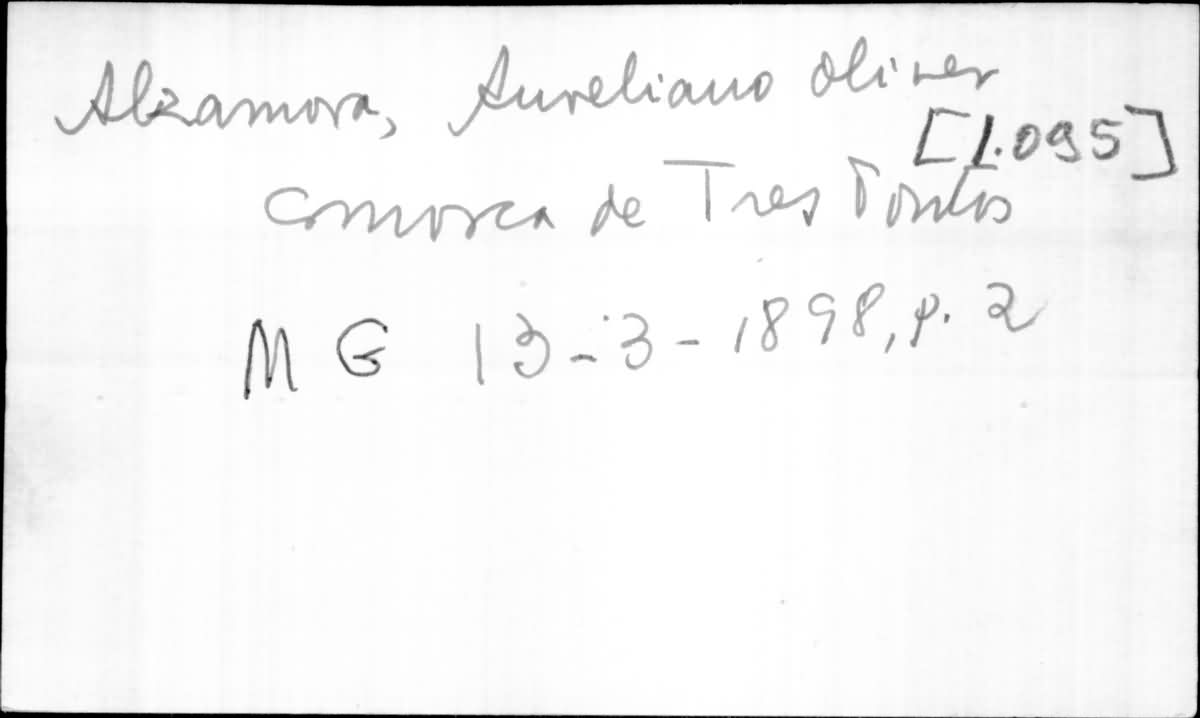 Alzamora, Aureliano Oliver
[1.095]
comarca de Tres Pontos
MG 13-3-1898, p. 2